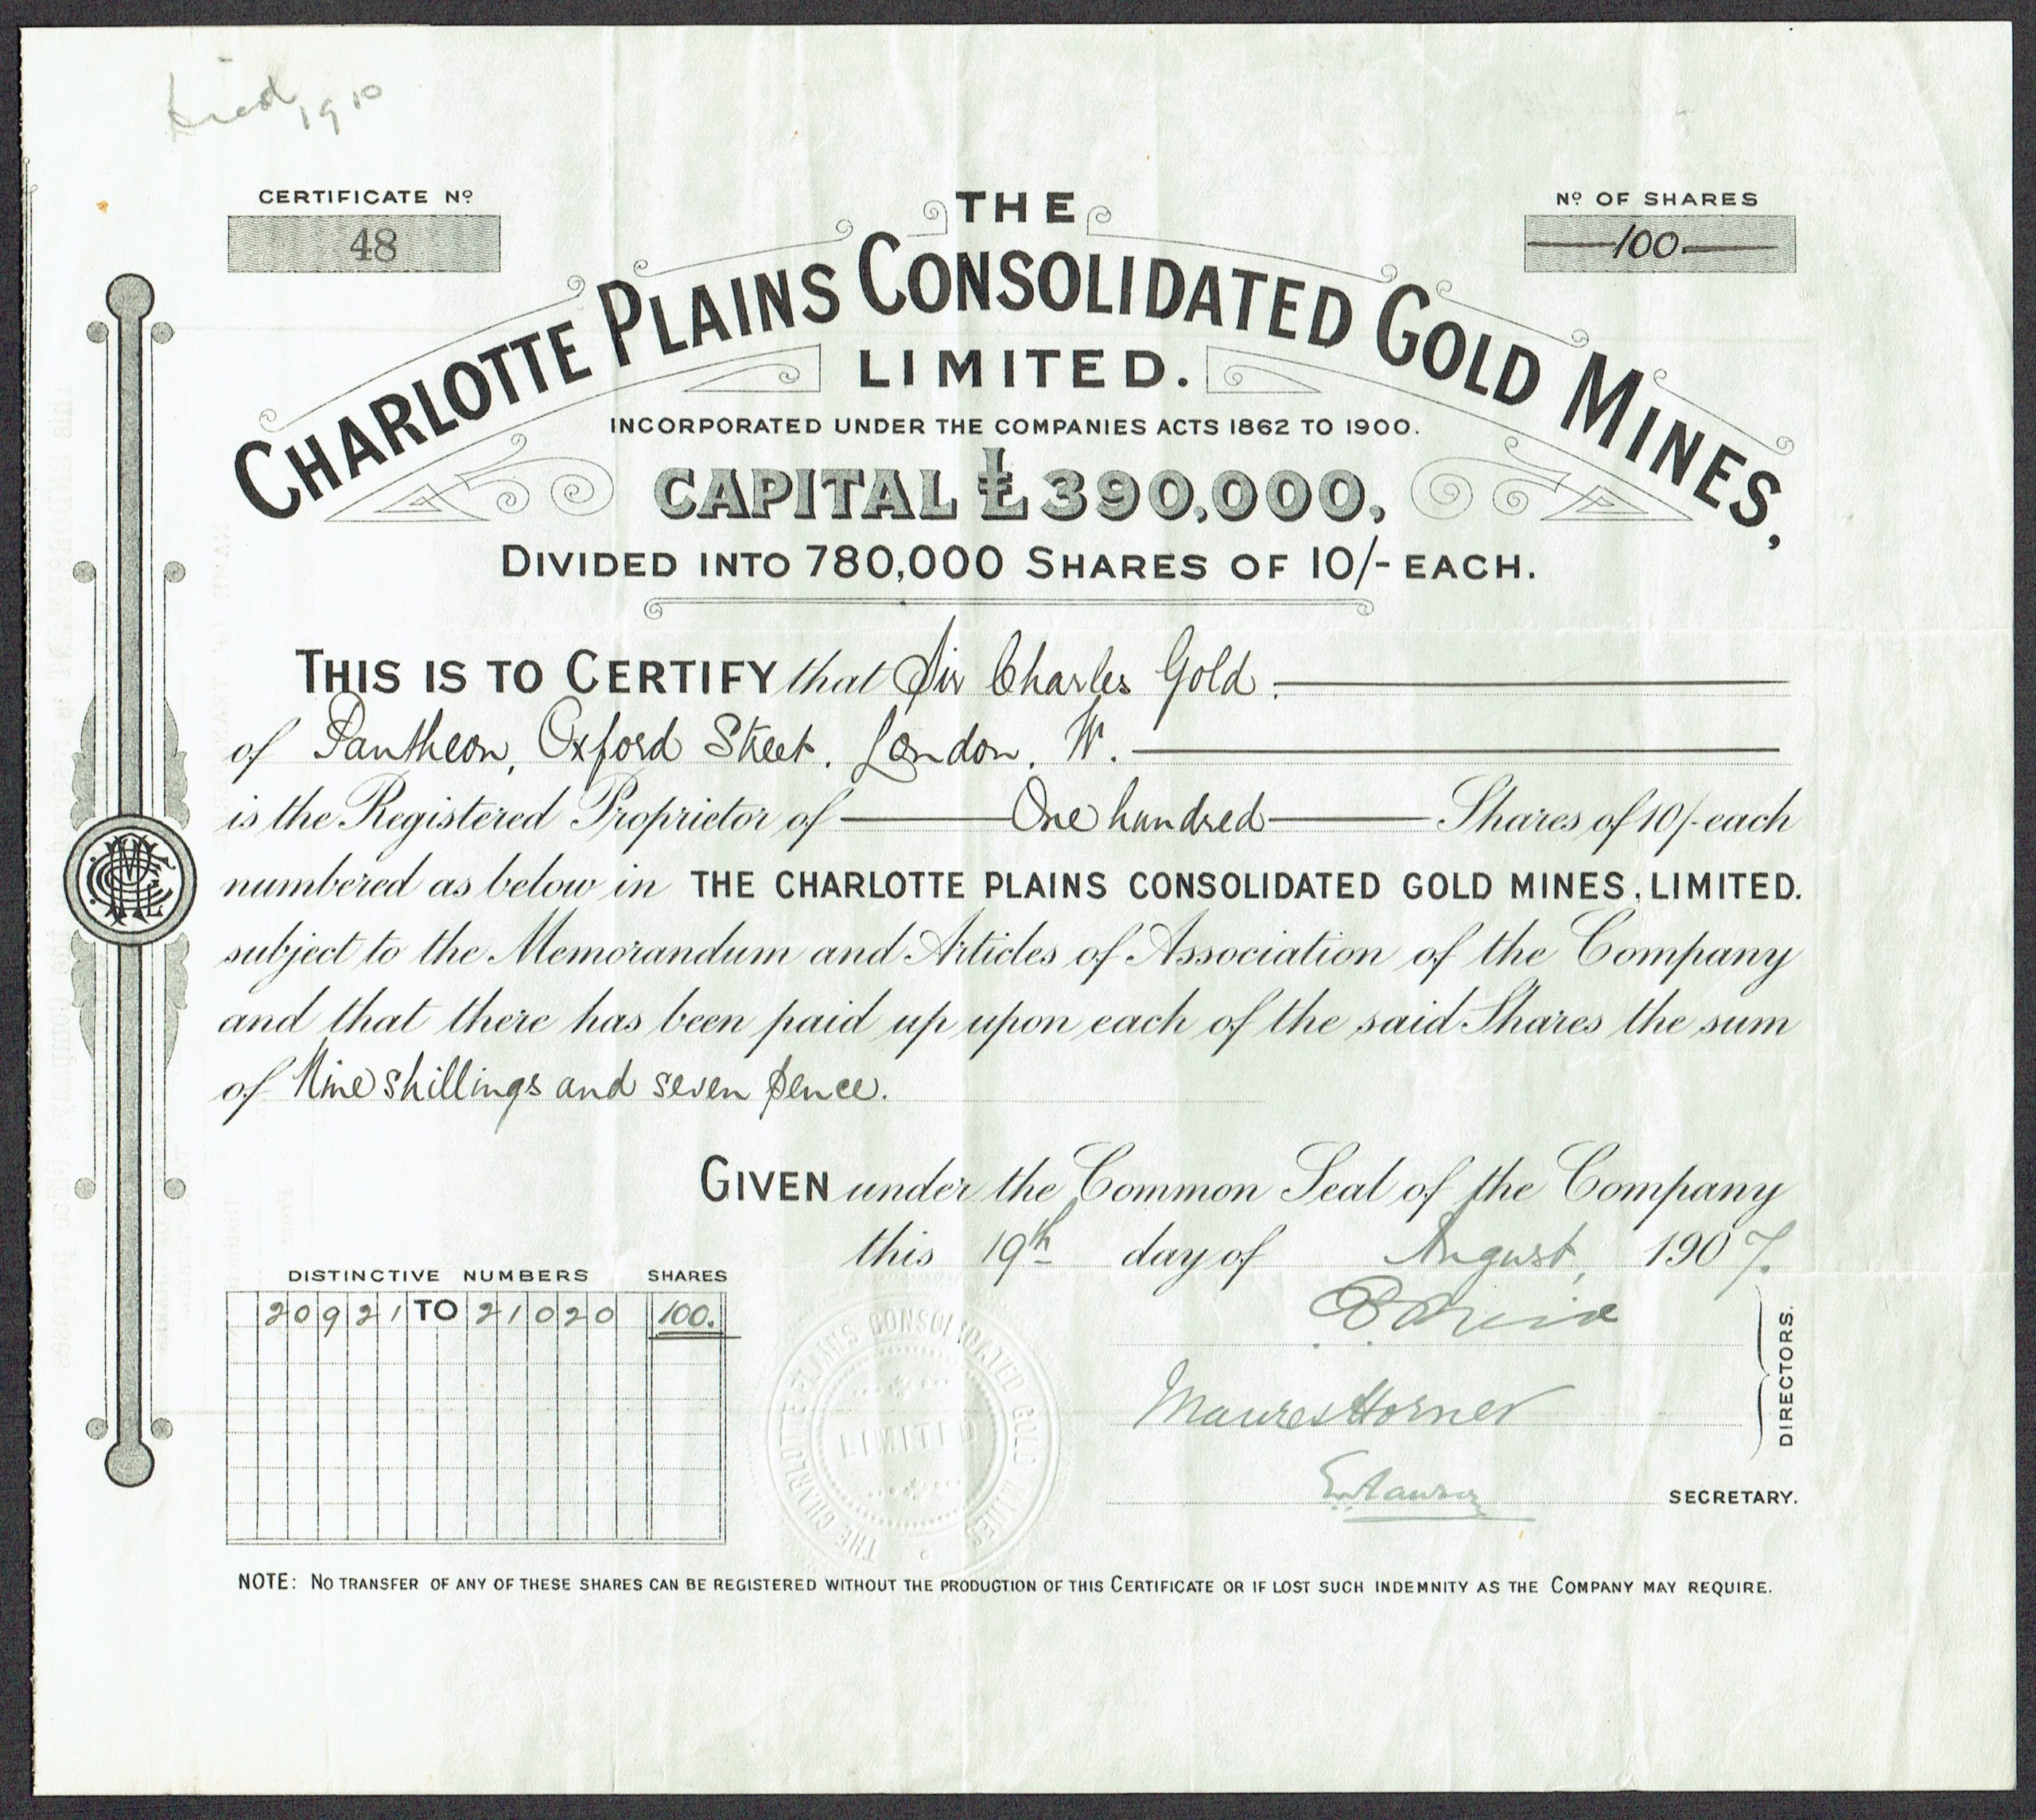 died 1910
CERTIFICATE Nº
48
Nº OF SHARES
100
THE
CHARLOTTE PLAINS CONSOLIDATED GOLD MINES,
LIMITED.
INCORPORATED UNDER THE COMPANIES ACTS 1862 TO 1900.
CAPITAL £390,000,
DIVIDED INTO 780,000 SHARES OF 10/- EACH.
THIS IS TO CERTIFY that Sir Charles Gold.
of Pantheon, Oxford Street, London, W.
is the Registered Proprietor of One hundred Shares of 10/- each
numbered as below in THE CHARLOTTE PLAINS CONSOLIDATED GOLD MINES, LIMITED.
subject to the Memorandum and Articles of Association of the Company
and that there has been paid up upon each of the said Shares the sum
of Nine shillings and seven pence.
GIVEN under the Common Seal of the Company
this 19th day of August, 1907.
DISTINCTIVE NUMBERS SHARES
20921 TO 21020 100.
Horner
DIRECTORS.
SECRETARY.
THE CHARLOTTE PLAINS CONSOLIDATED GOLD MINES
LIMITED
NOTE: NO TRANSFER OF ANY OF THESE SHARES CAN BE REGISTERED WITHOUT THE PRODUGTION OF THIS CERTIFICATE OR IF LOST SUCH INDEMNITY AS THE COMPANY MAY REQUIRE.